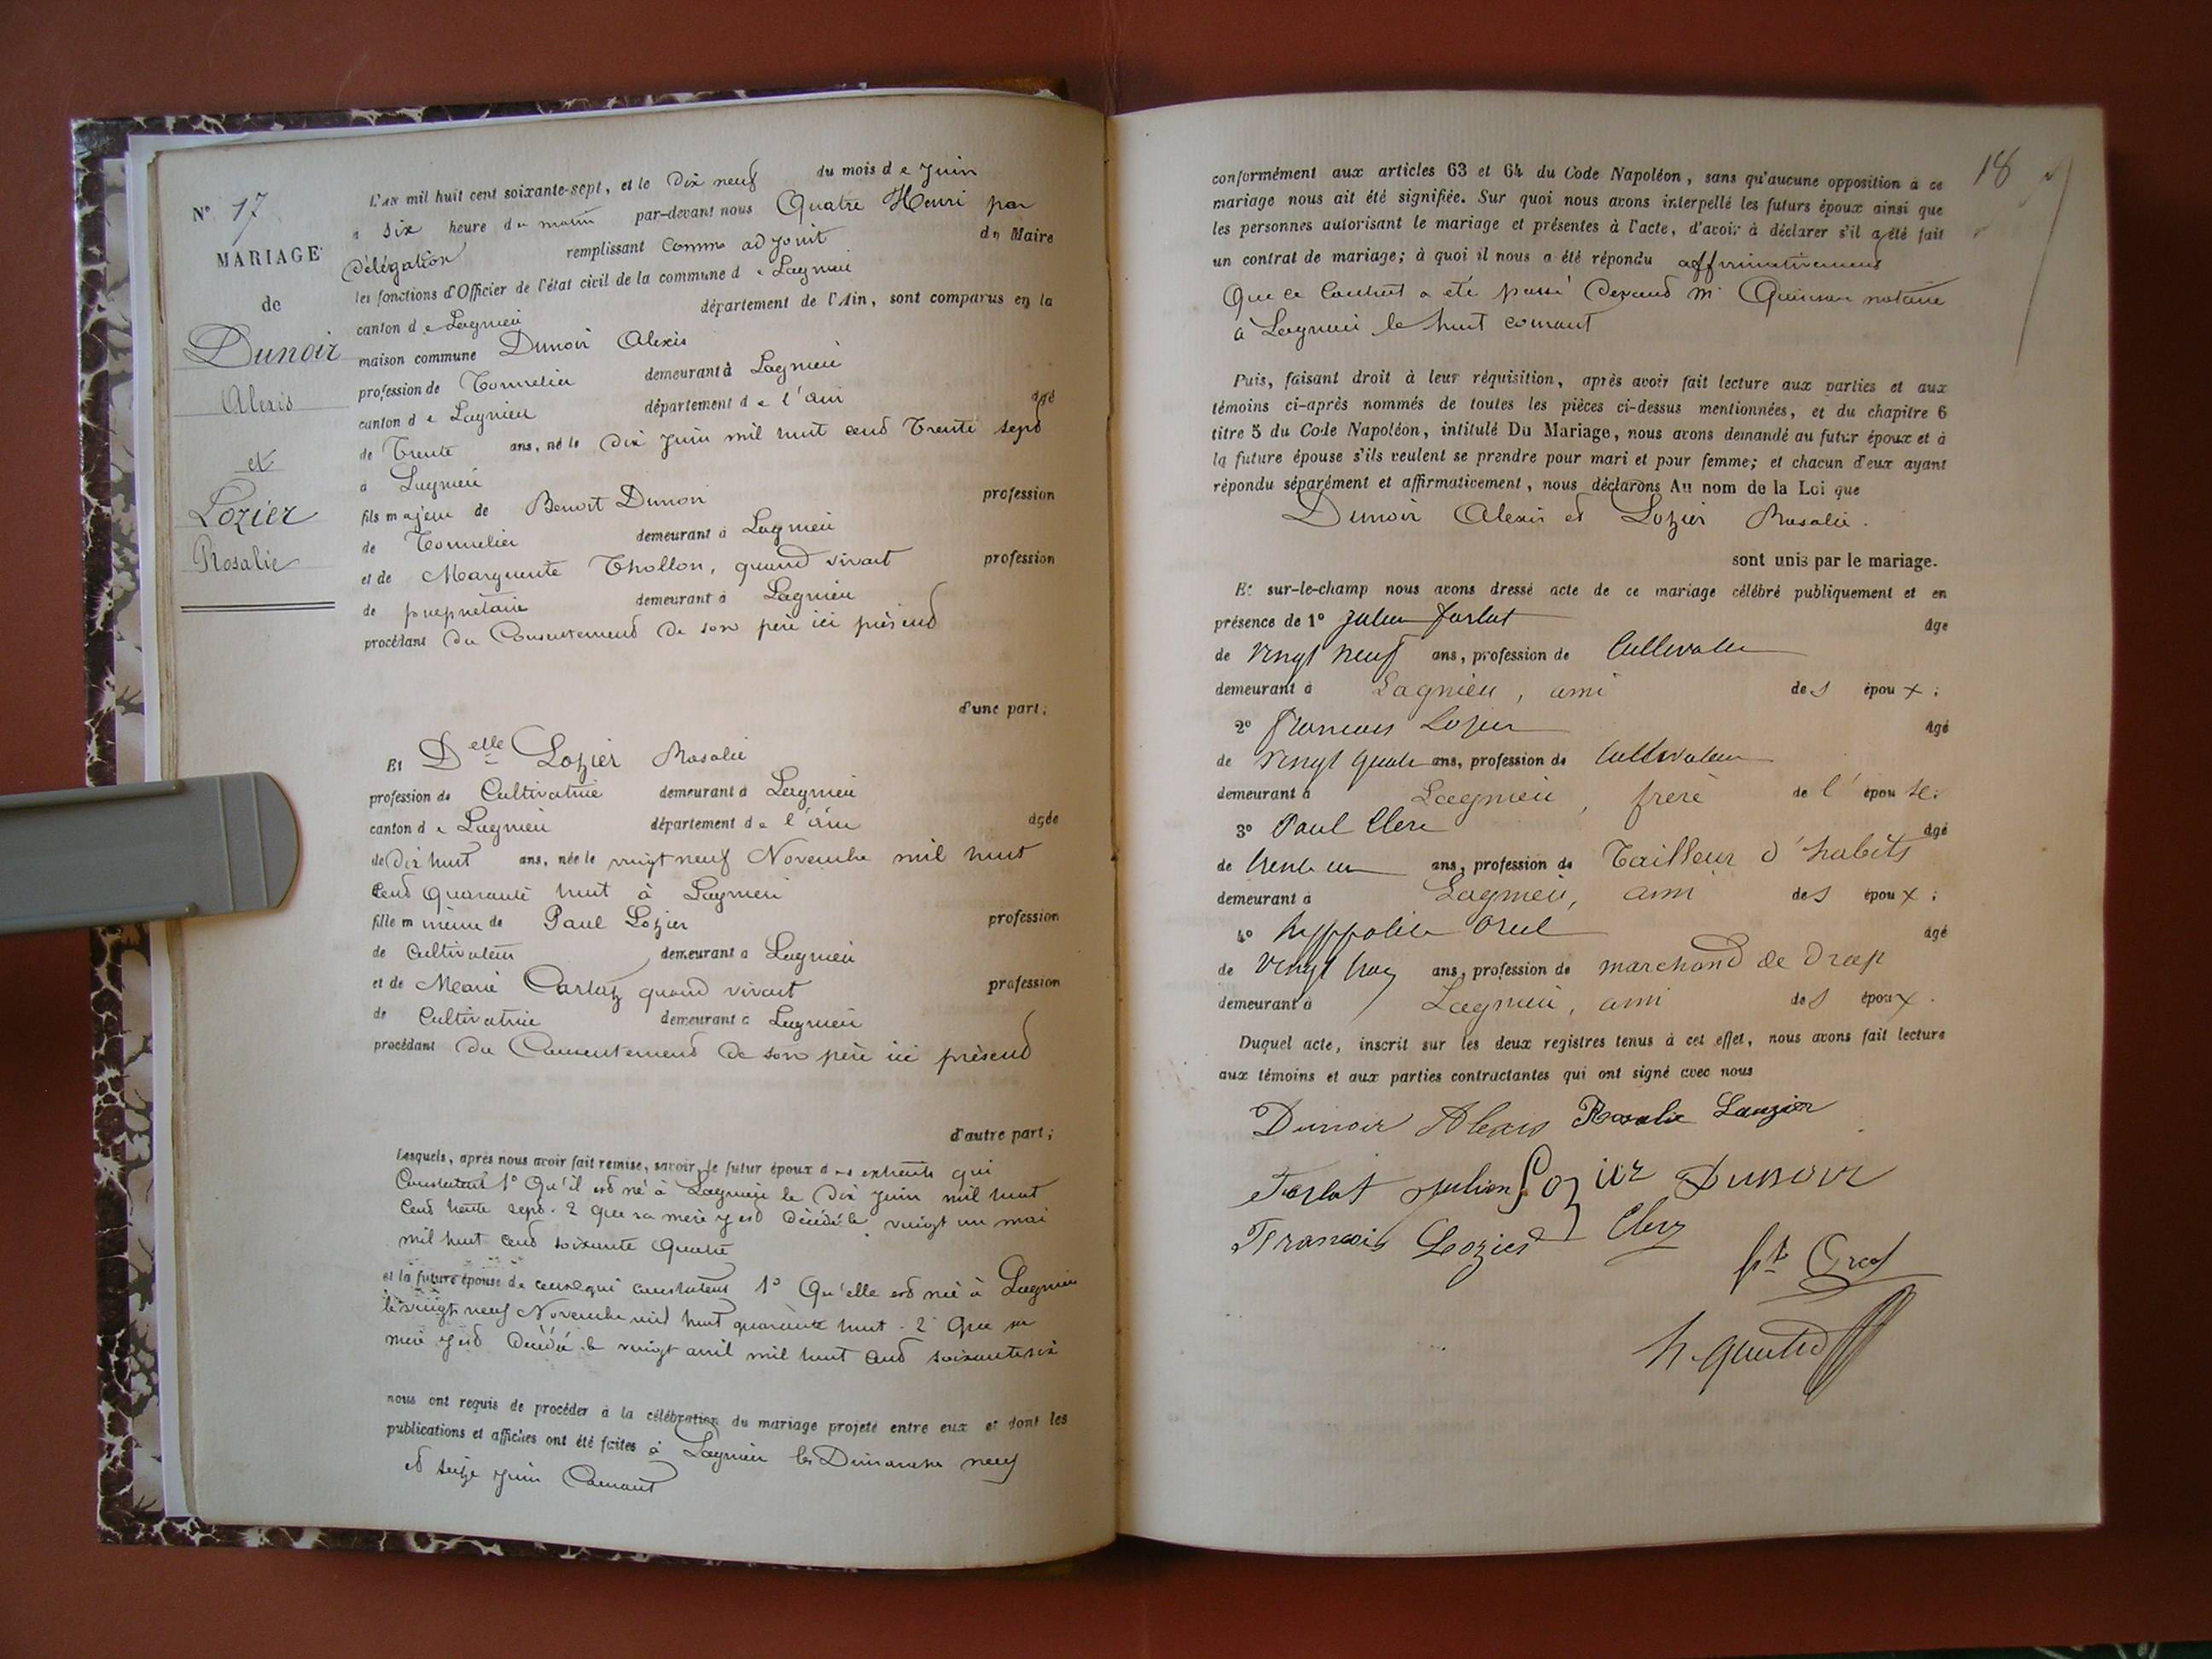 N° 17
MARIAGE
de
Dunoir
Alexis
et
Lozier
Rosalie
L'AN mil huit cent soixante-sept, et le Dix neuf du mois de Juin
à six heure du matin par-devant nous Quatre Henri par
Délégation remplissant Comme adjoint du Maire
les fonctions d'Officier de l'état civil de la commune de Lagnieu
canton de Lagnieu département de l'Ain, sont comparus en la
maison commune Dunoir Alexis
profession de Tonnelier demeurant à Lagnieu
canton de Lagnieu département de l'ain âgé
de Trente ans, né le Dix Juin mil huit cend Trente sept
à Lagnieu
fils majeur de Benoit Dunoir profession
de Tonnelier demeurant à Lagnieu
et de Marguerite Thollon, quand vivait profession
de propriétaire demeurant à Lagnieu
procédant du Consentemend de son père ici présend
d'une part;
Et Delle Lozier Rosalie
profession de Cultivatrice demeurant à Lagnieu
canton de Lagnieu département de l'ain âgée
de Dix huit ans, née le vingt neuf Novembre mil huit
cend quarante huit à Lagnieu
fille mineure de Paul Lozier profession
de Cultivateur demeurant à Lagnieu
et de Marie Carlaz quand vivait profession
de Cultivatrice demeurant à Lagnieu
procédant du Consentemend de son père ici présend
d'autre part;
Lesquels, après nous avoir fait remise, savoir, le futur époux des extraits qui
Constatent 1° Qu'il esd né à Lagnieu le Dix Juin mil huit
Cend trente sept. 2 Que sa mère y esd Décédée le vingt un mai
mil huit cend soixante Quatre
et la future épouse de ceux qui constatent 1° Qu'elle esd née à Lagnieu
le vingt neuf Novembre mil huit quarante huit. 2° Que sa
mère y esd Décédée le vingt avril mil huit cend soixante six
nous ont requis de procéder à la célébration du mariage projeté entre eux et dont les
publications et affiches ont été faites à Lagnieu les Dimanches neuf
ed seize Juin Courant
18
conformément aux articles 63 et 64 du Code Napoléon, sans qu'aucune opposition à ce
mariage nous ait été signifiée. Sur quoi nous avons interpellé les futurs époux ainsi que
les personnes autorisant le mariage et présentes à l'acte, d'avoir à déclarer s'il a été fait
un contrat de mariage; à quoi il nous a été répondu affirmativement
Que ce Contrat a été passé Devand Me Quinson notaire
à Lagnieu le huit courant
Puis, faisant droit à leur réquisition, après avoir fait lecture aux parties et aux
témoins ci-après nommés de toutes les pièces ci-dessus mentionnées, et du chapitre 6
titre 5 du Code Napoléon, intitulé DU MARIAGE, nous avons demandé au futur époux et à
la future épouse s'ils veulent se prendre pour mari et pour femme; et chacun d'eux ayant
répondu séparément et affirmativement, nous déclarons AU NOM DE LA LOI que
Dunoir Alexis ed Lozier Rosalie.
sont unis par le mariage.
Et sur-le-champ nous avons dressé acte de ce mariage célébré publiquement et en
présence de 1° Julien farlat âgé
de vingt neuf ans, profession de Cultivateur
demeurant à Lagnieu, ami des époux;
2° francois Lozier âgé
de vingt quatre ans, profession de Cultivateur
demeurant à Lagnieu, frère de l'épouse;
3° Paul Clerc âgé
de trente un ans, profession de Tailleur d'habits
demeurant à Lagnieu, ami des époux;
4° hyppolite Orcel âgé
de vingt trois ans, profession de marchand de Drap
demeurant à Lagnieu, ami des époux.
Duquel acte, inscrit sur les deux registres tenus à cet effet, nous avons fait lecture
aux témoins et aux parties contractantes qui ont signé avec nous
Dunoir Alexis Rosalie Lauzier
Farlat Julien Lozier Dunoir
Francois Lozier Clerc
hte Orcel
h. Quatre